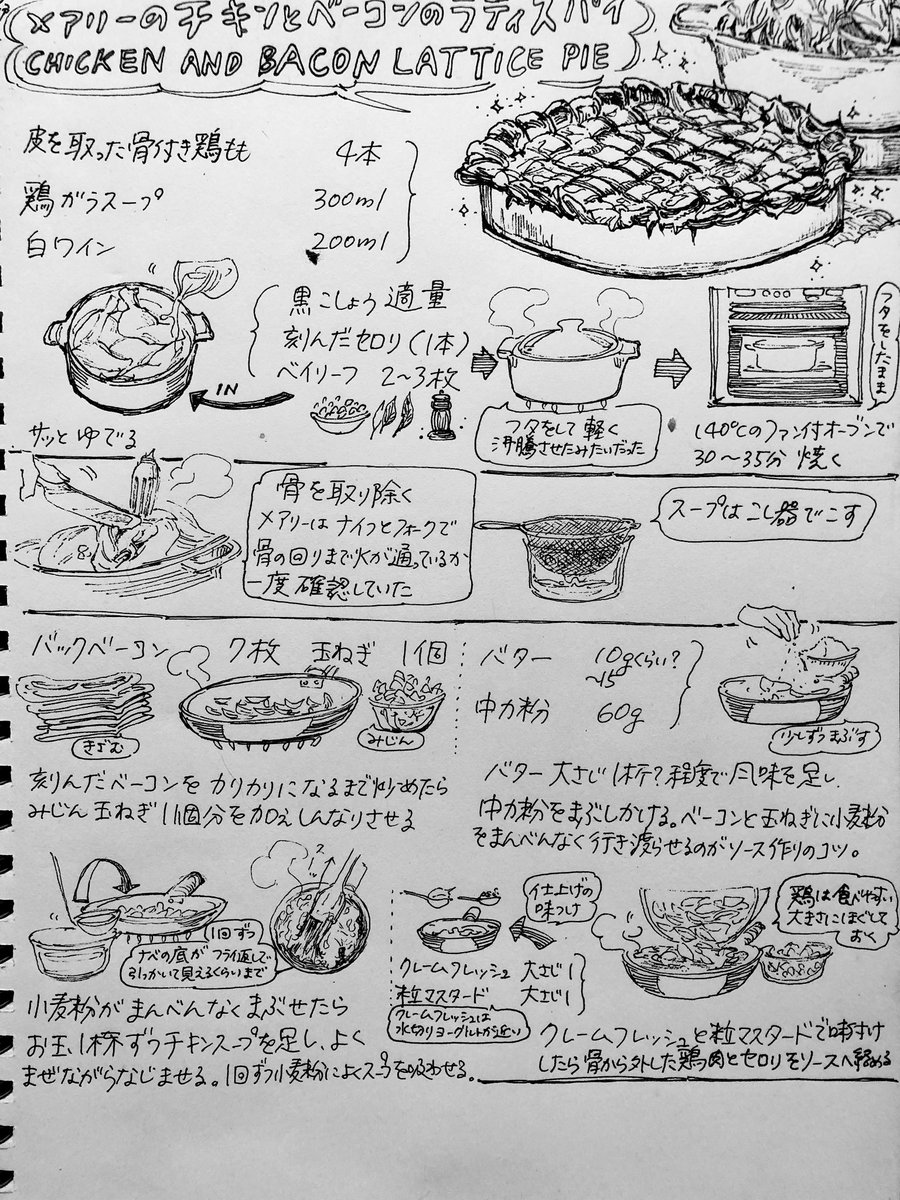 メアリーのチキンとベーコンのラティスパイ
CHICKEN AND BACON LATTICE PIE
皮を取った骨付き鶏もも 4本
鶏がらスープ 300ml
白ワイン 200ml
黒こしょう 適量
刻んだセロリ(1本)
ベイリーフ 2〜3枚
IN
サッとゆでる
フタをして軽く
沸騰させたみたいだった
フタをしたまま
140℃のファン付オーブンで
30〜35分 焼く
骨を取り除く
メアリーはナイフとフォークで
骨の回りまで火が通っているか
一度確認していた
スープはこし器でこす
バックベーコン 7枚 玉ねぎ 1個
きざむ
みじん
刻んだベーコンをカリカリになるまで炒めたら
みじん玉ねぎ1個分を加えしんなりさせる
バター 10gくらい?
〜15
中力粉 60g
少しずつまぶす
バター大さじ1杯?程度で風味を足し、
中力粉をまぶしかける。ベーコンと玉ねぎに小麦粉
をまんべんなく行き渡らせるのがソース作りのコツ。
1回ずつ
ナベの底がフライ返しで
引っかいて見えるくらいまで
小麦粉がまんべんなくまぶせたら
お玉1杯ずつチキンスープを足し、よく
まぜながらなじませる。1回ずつ小麦粉によくスープを吸わせる。
仕上げの
味つけ
クレームフレッシュ 大さじ1
粒マスタード 大さじ1
クレームフレッシュは
水切りヨーグルトが近い
鶏は食べやすい
大きさにほぐして
おく
クレームフレッシュと粒マスタードで味付け
したら骨から外した鶏肉とセロリをソースへ絡める